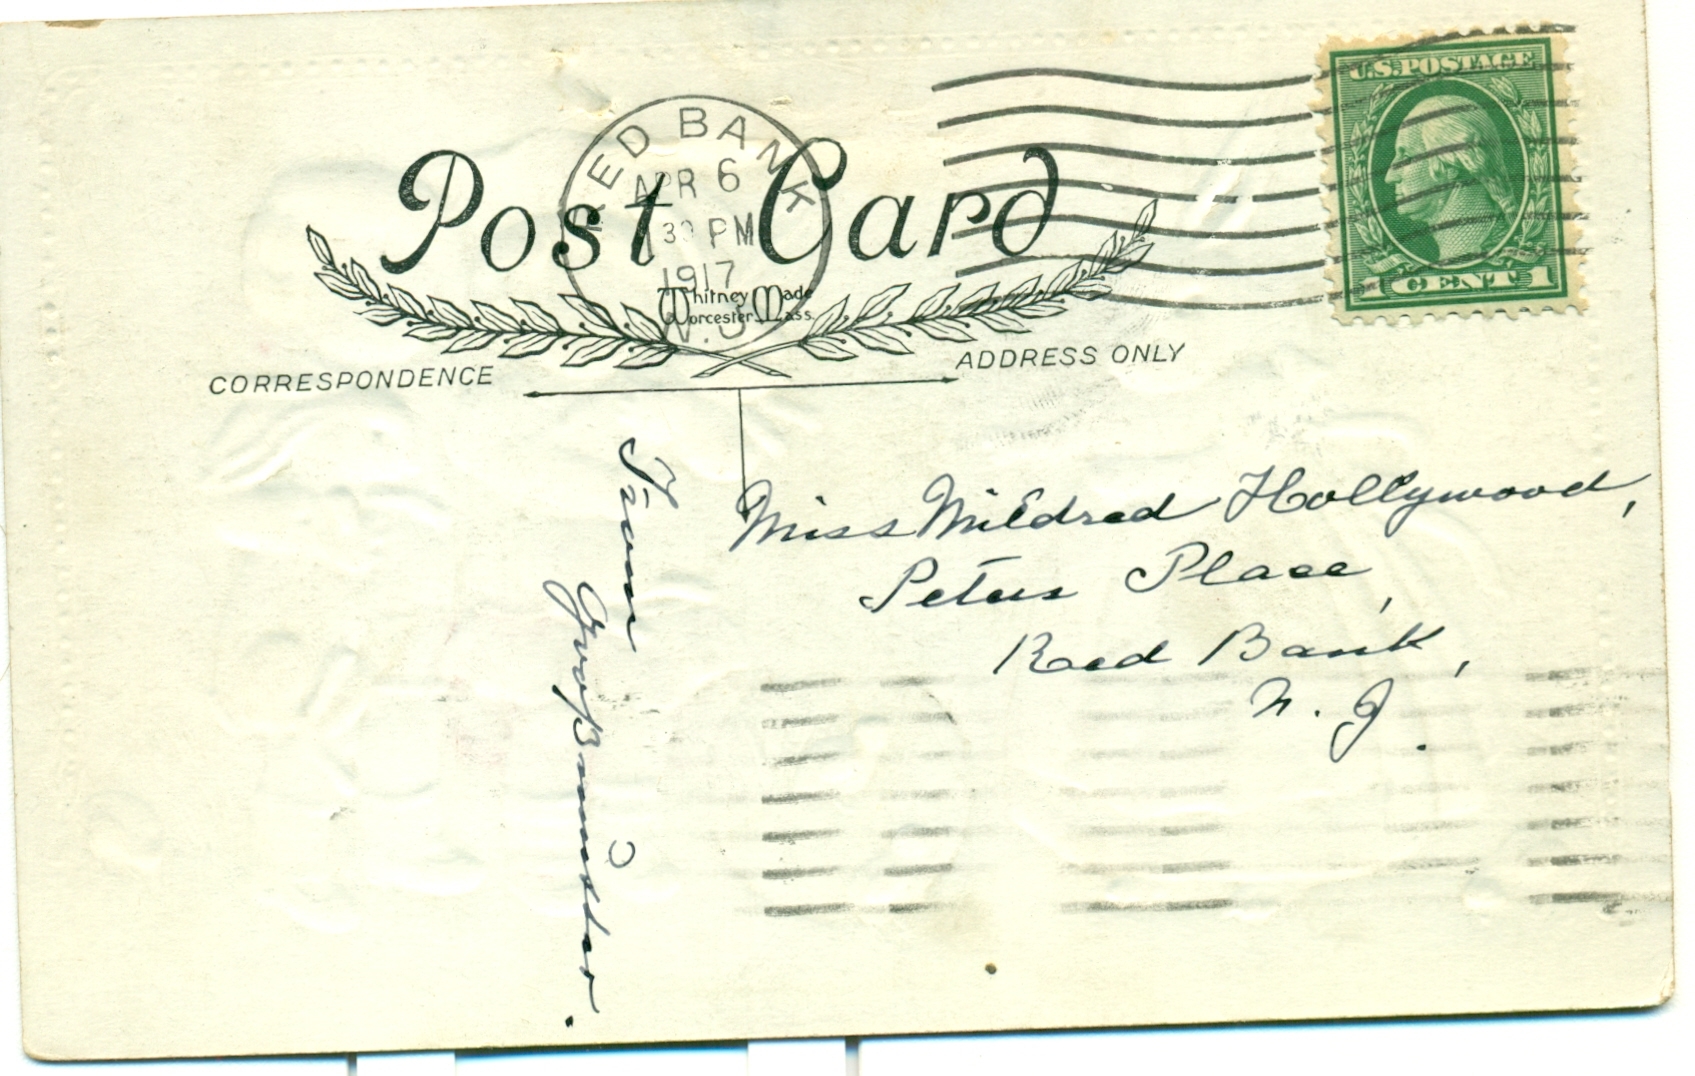 U.S. POSTAGE
1 CENT 1
RED BANK
APR 6
30 PM
1917
N.J.
Post Card
Whitney Made
Worcester Mass.
CORRESPONDENCE
ADDRESS ONLY
Miss Mildred Hollywood,
Peters Place,
Red Bank,
N. J.
From
Großmutter.